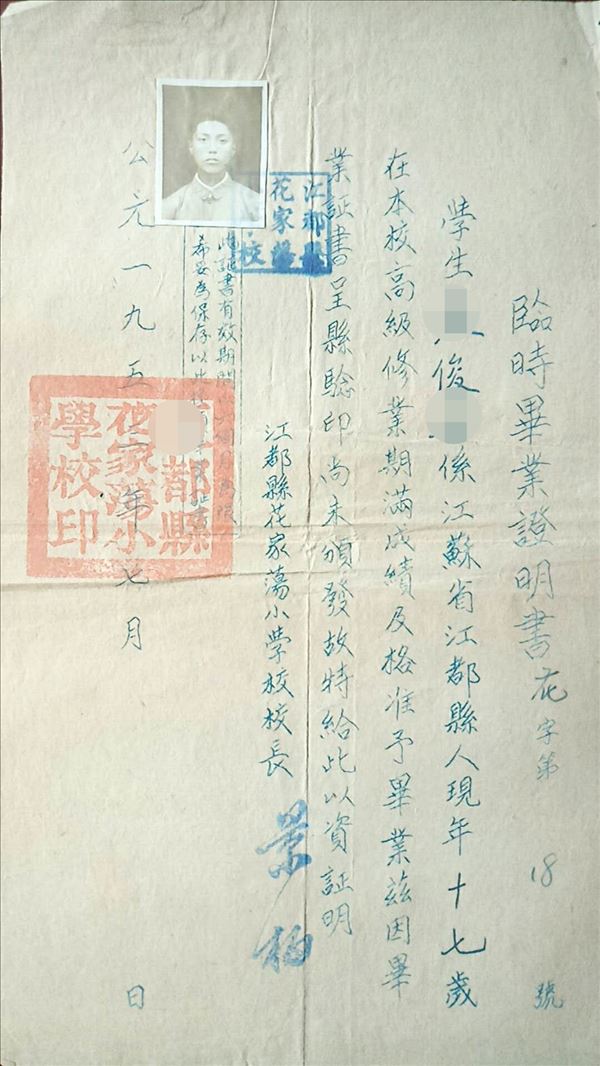 臨時畢業證明書花字第18號
學生俊係江蘇省江都縣人現年十七歲
在本校高級修業期滿成績及格准予畢業茲因畢
業証書呈縣驗印尚未頒發故特給此以資証明
江都縣花家蕩小學校校長
江都縣
花家蕩
校
此証書有效期間為限
希妥為保存以
公元一九五年七月日
都縣
花家蕩小
學校印